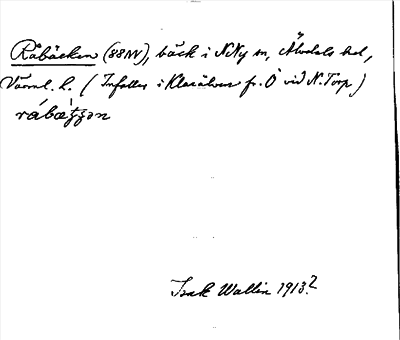 Råbäcken (88NV), bäck i N.Ny sn, Älvdals hd,
Värml. l. (Infaller i Klarälven fr. Ö vid N. Torp)
Isak Wallin 1913?